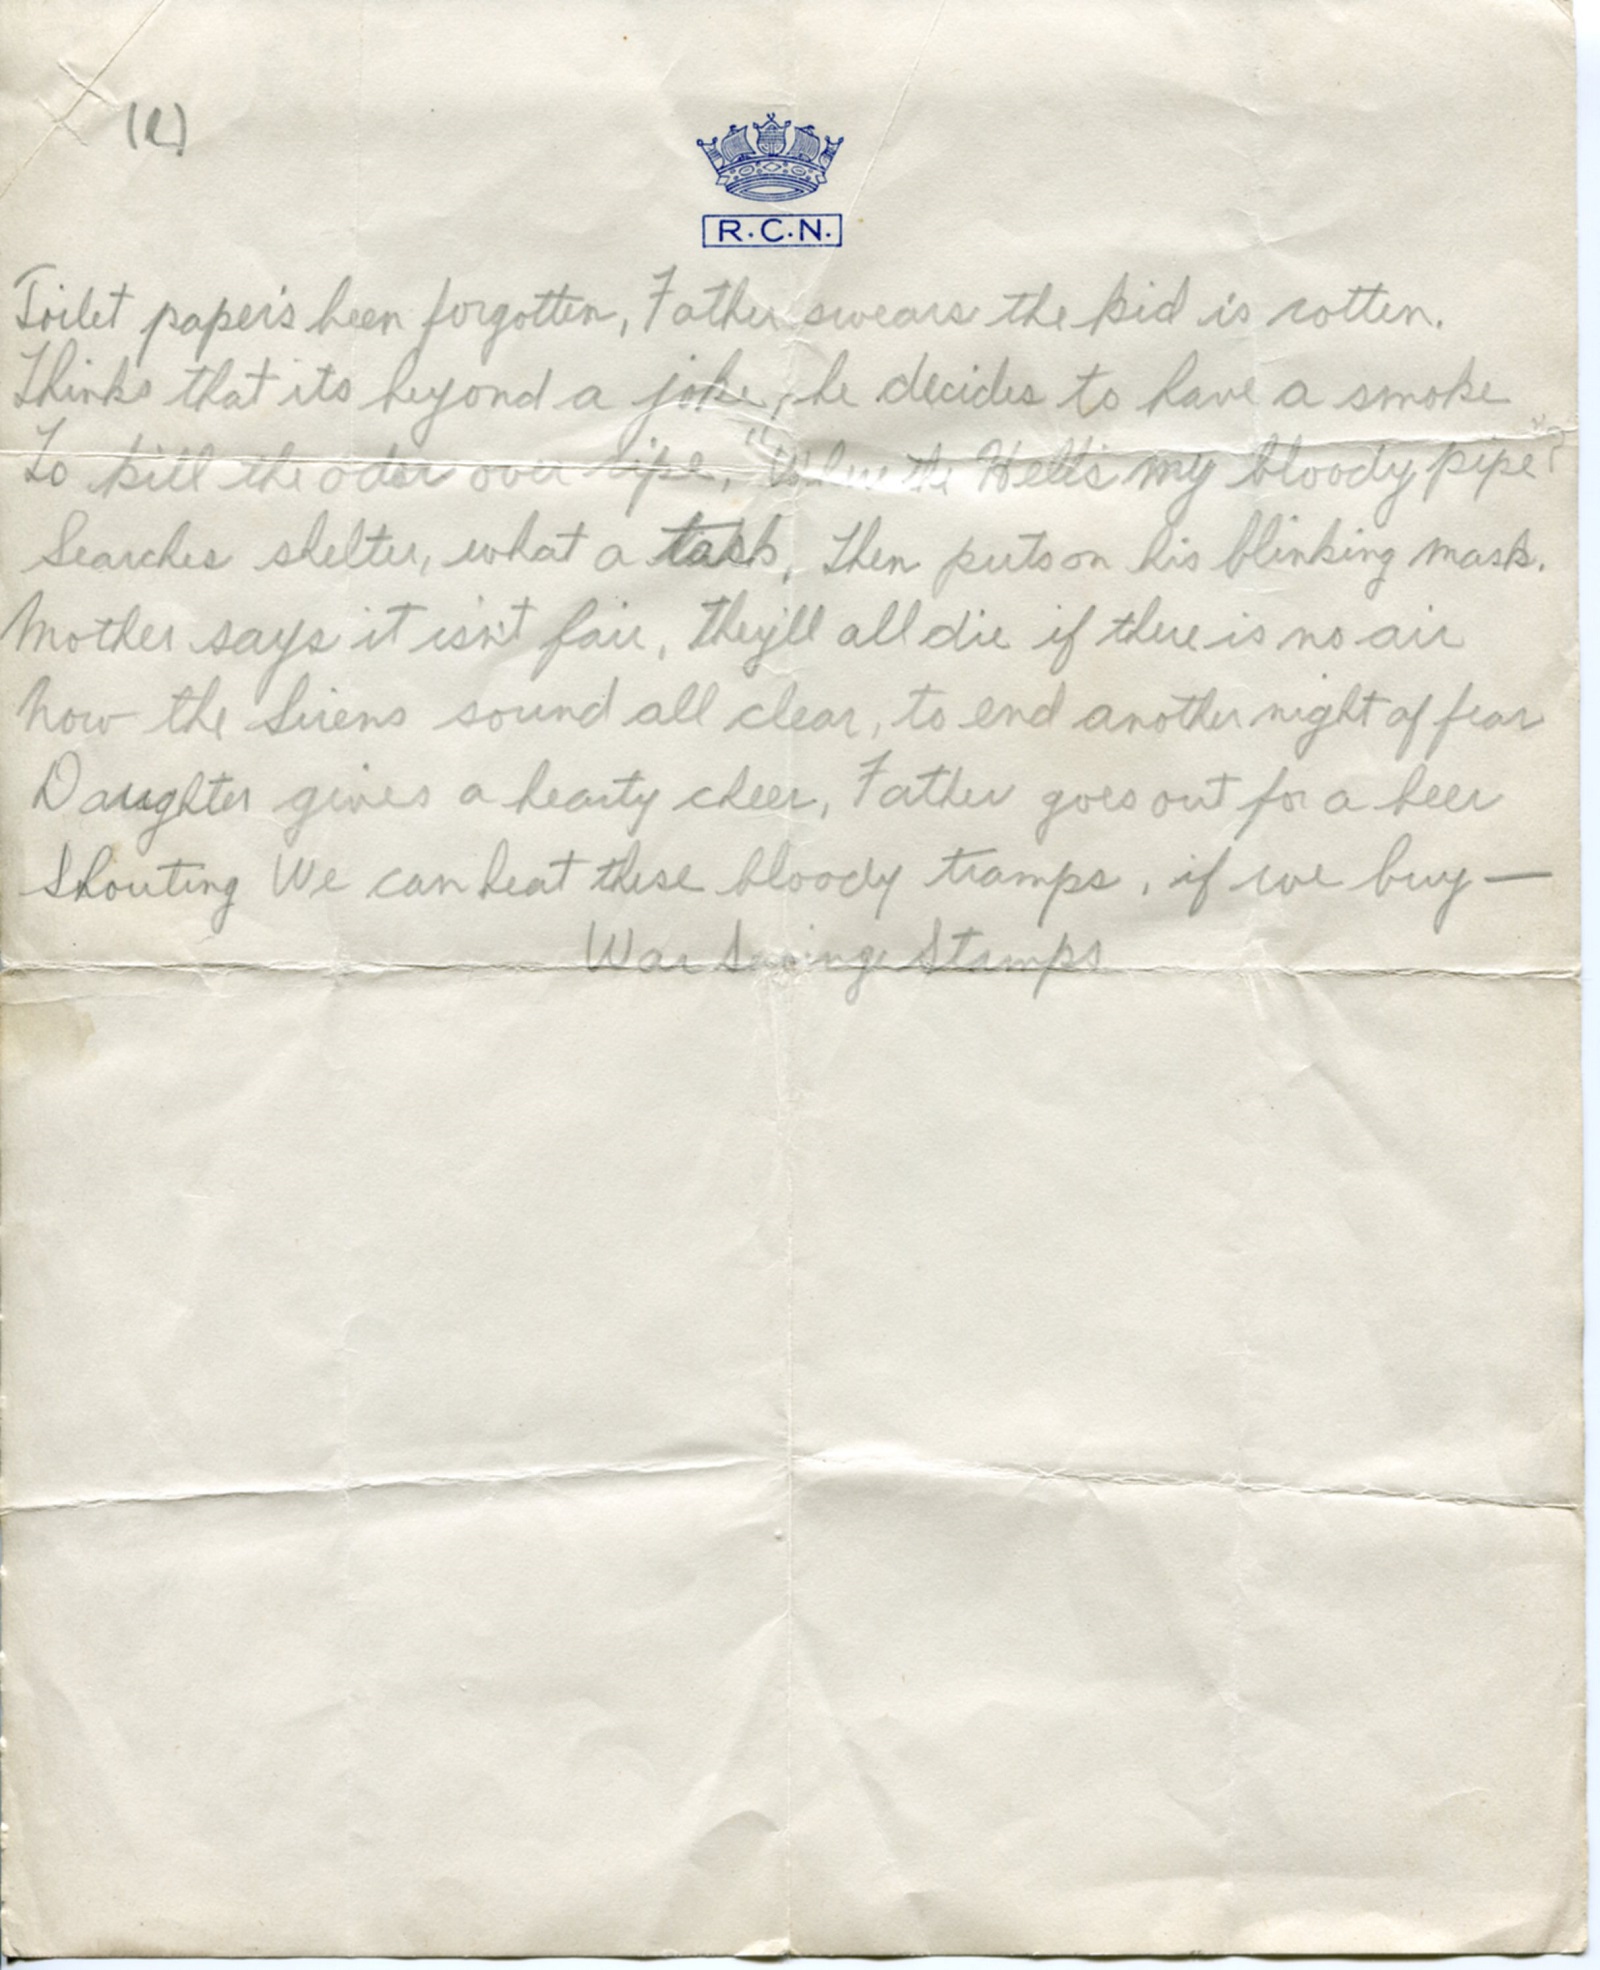 (2)
R.C.N.
Toilet paper's been forgotten, Father swears the kid is rotten.
Thinks that its beyond a joke, he decides to have a smoke
To kill the oder over ripe, "Where the Hell's my bloody pipe"?
Searches shelter, what a task, then puts on his blinking mask.
Mother says it isn't fair, they'll all die if there is no air
Now the Sirens sound all clear, to end another night of fear
Daughter gives a hearty cheer, Father goes out for a beer
Shouting We can beat these bloody tramps, if we buy —
War Savings Stamps